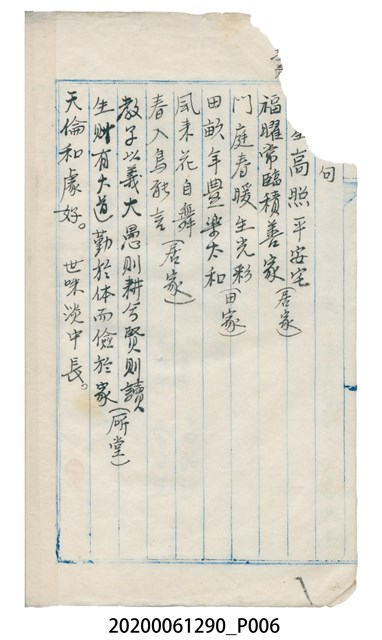 句
高照平安宅(居家)
福曜常臨積善家
門庭春暖生光彩(田家)
田畝年豐樂太和
風来花自舞(居家)
春入鳥能言
教子以義大愚則耕兮賢則讀
生財有大道勤於体而儉於家(所堂)
天倫和處好。世味淡中長。
20200061290_P006